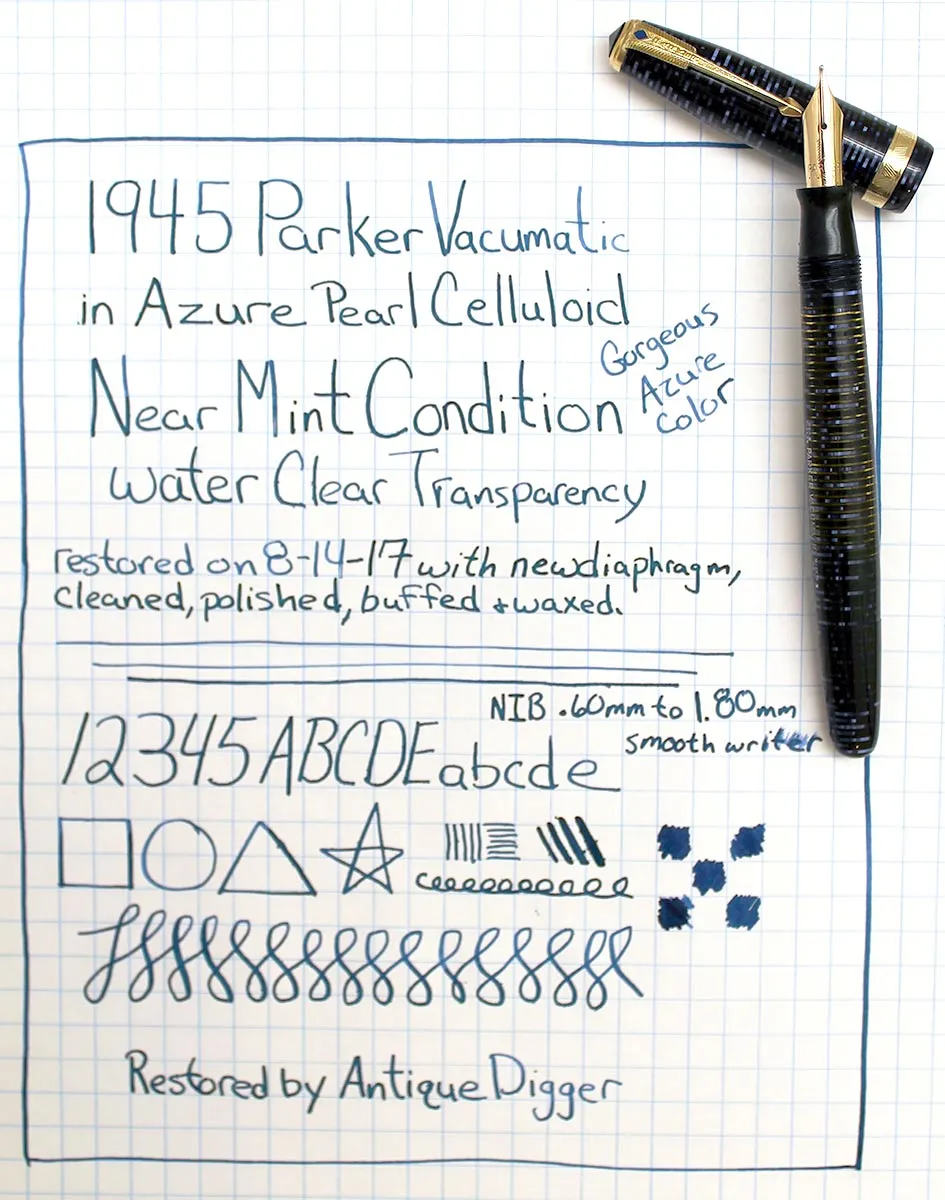 1945 Parker Vacumatic
in Azure Pearl Celluloid
Gorgeous
Azure
Color
Near Mint Condition
water Clear Transparency
restored on 8-14-17 with new diaphragm,
cleaned, polished, buffed + waxed.
NIB .60mm to 1.80mm
smooth writer
12345 ABCDE abcde
Restored by Antique Digger